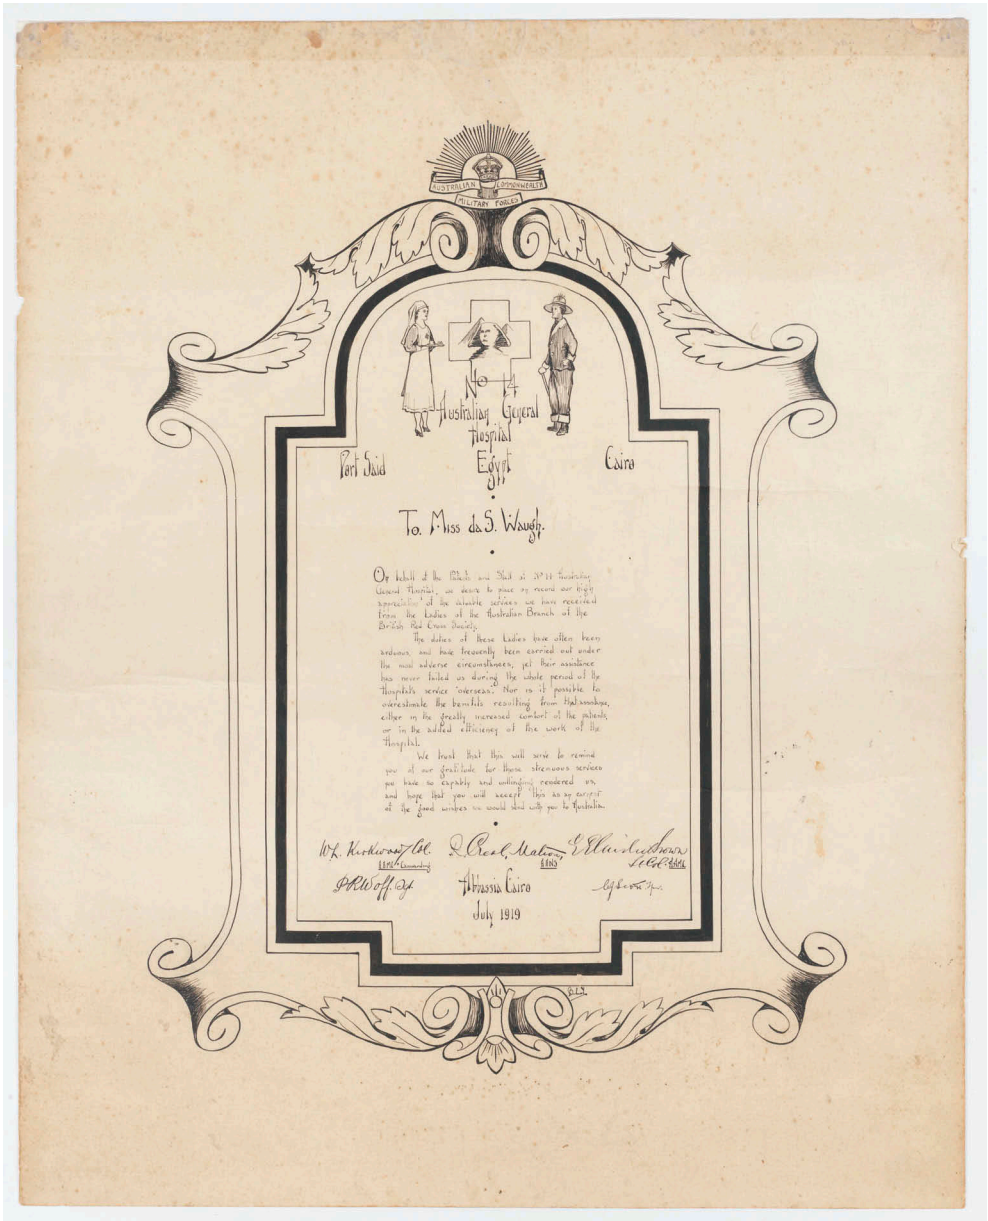 AUSTRALIAN COMMONWEALTH
MILITARY FORCES
No 14
Australian General
Hospital
Port Said Egypt Cairo
To. Miss da S. Waugh.
On behalf of the Patients and Staff of Nº 14 Australian
General Hospital, we desire to place on record our high
appreciation of the valuable services we have received
from the Ladies of the Australian Branch of the
British Red Cross Society.
The duties of these Ladies have often been
arduous, and have frequently been carried out under
the most adverse circumstances; yet their assistance
has never failed us during the whole period of the
Hospital's service overseas. Nor is it possible to
overestimate the benifits resulting from that assistance,
either in the greatly increased comfort of the patients,
or in the added efficiency of the work of the
Hospital.
We trust that this will serve to remind
you of our gratitude for those strenuous services
you have so capably and willingly rendered us,
and hope that you will accept this as an earnest
of the good wishes we would send with you to Australia.
W.L. Kirkwood Col. Creal, Matron, Brown
AAMC Commanding AANS Lt Col. AAMC
Abbassia Cairo
July 1919